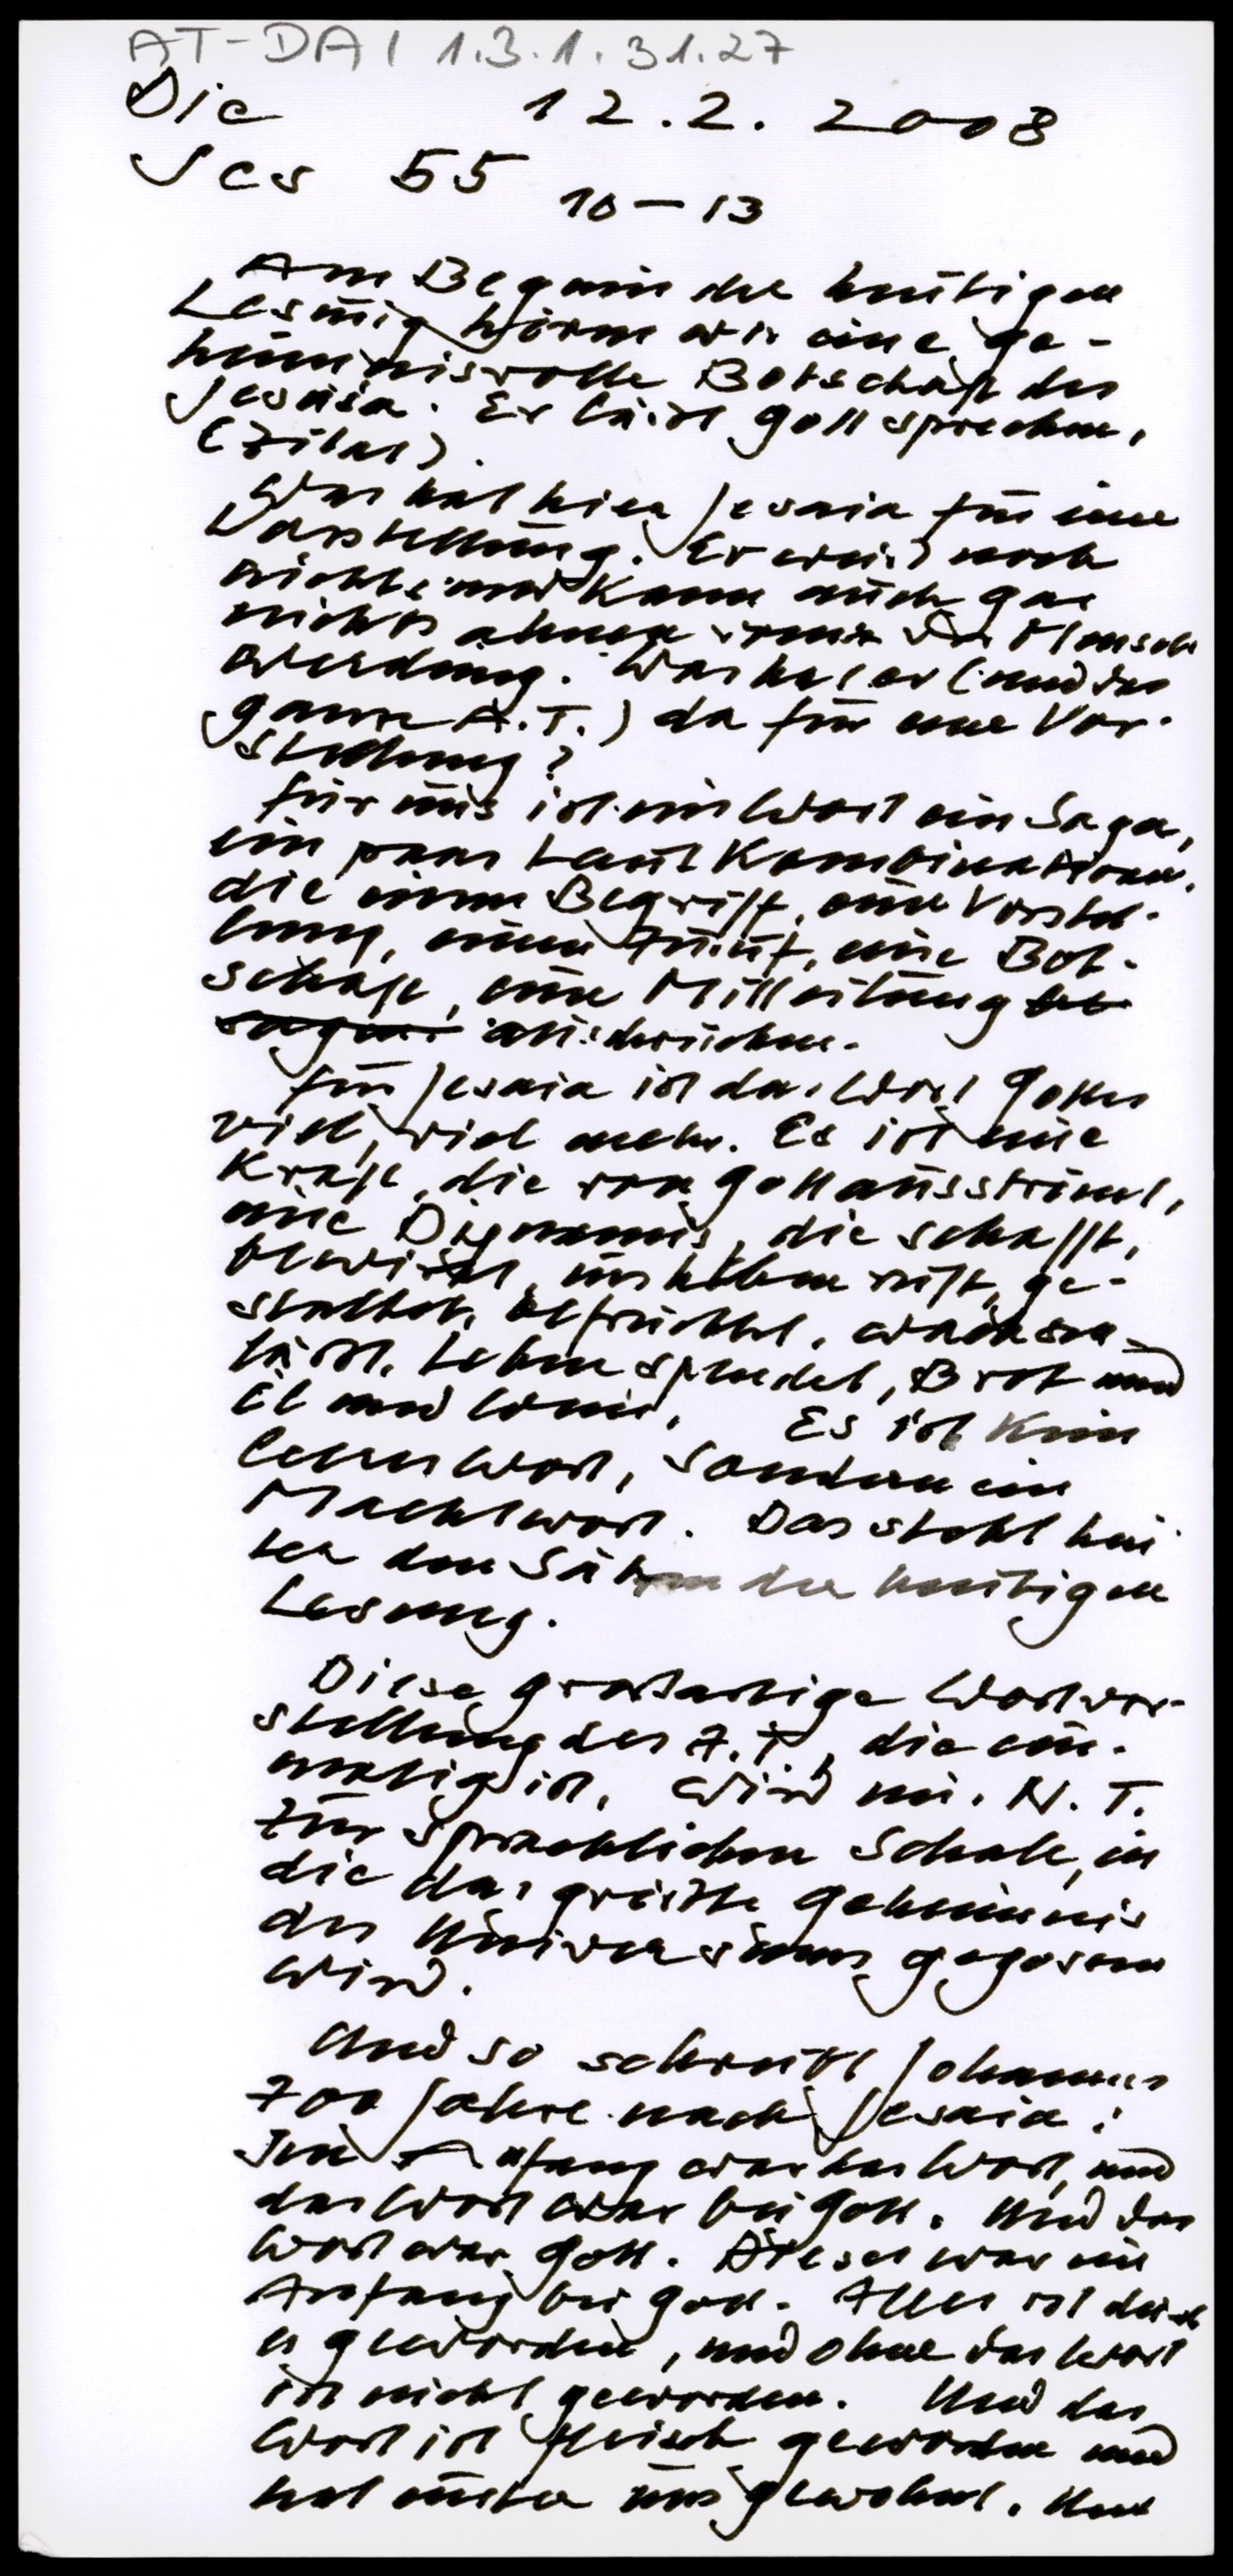 AT-DAI 1.3.1.31.27
Die 12.2.2008
Jes 55 10–13
Am Beginn der heutigen
Lesung hören wir eine ge-
heimnisvolle Botschaft des
Jesaia. Er läßt Gott sprechen,
(Zitat).
Was hat hier Jesaia für eine
Vorstellung. Er weiß noch
nichts und kann auch gar
nichts ahnen von der Mensch
werdung. Was hat er (und das
ganze A.T.) da für eine Vor-
stellung?
Für uns ist ein Wort ein Sager,
ein paar Lautkombinationen,
die einen Begriff, eine Vorstel-
lung, einen Zuruf, eine Bot-
schaft, eine Mitteilung
ausdrücken.
Für Jesaia ist das Wort Gottes
viel, viel mehr. Es ist eine
Kraft, die von Gott ausströmt,
eine Dynamis, die schafft,
bewirkt, ins Leben ruft, ge-
staltet, befruchtet, wachsen
läßt, Leben spendet, Brot und
Öl und Wein. Es ist kein
leeres Wort, sondern ein
Machtwort. Das steht hin
ter den Sätzen der heutigen
Lesung.
Diese großartige Wortvor-
stellung des A.T., die ein-
malig ist, wird im N.T.
zur sprachlichen Schale, in
die das größte Geheimnis
des Universums gegossen
wird.
Und so schreibt Johannes
700 Jahre nach Jesaia:
Im Anfang war das Wort, und
das Wort war bei Gott. Und das
Wort war Gott. Dieses war im
Anfang bei Gott. Alles ist durch
es geworden, und ohne das Wort
ist nichts geworden. Und das
Wort ist Fleisch geworden und
hat unter uns gewohnt. Und